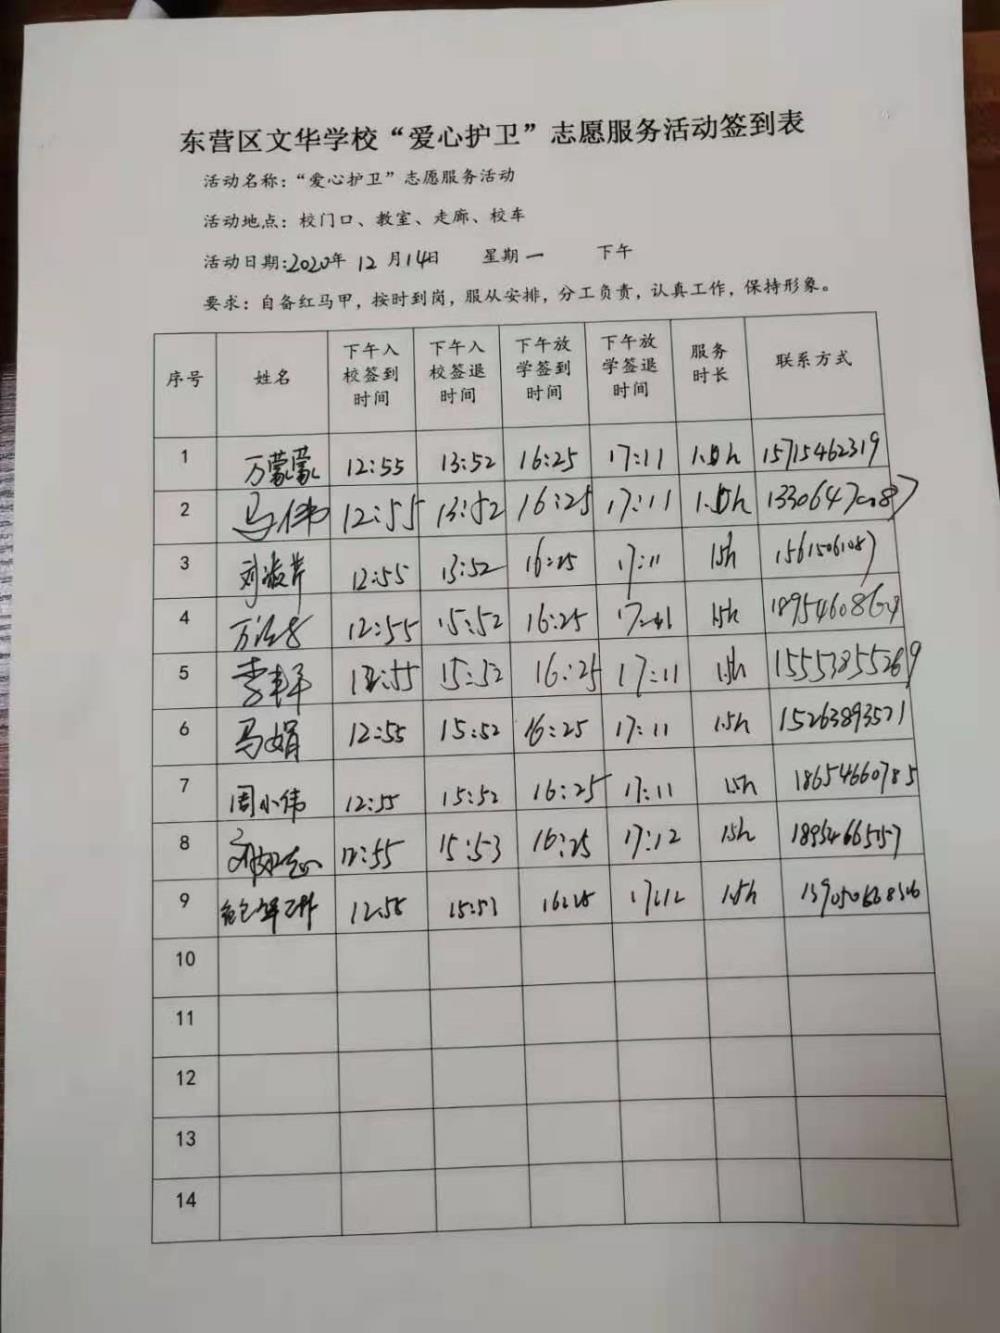 东营区文华学校“爱心护卫”志愿服务活动签到表
活动名称：“爱心护卫”志愿服务活动
活动地点：校门口、教室、走廊、校车
活动日期：2020年 12 月 14日 星期 一 下午
要求：自备红马甲，按时到岗，服从安排，分工负责，认真工作，保持形象。
序号 姓名 下午入校签到时间 下午入校签退时间 下午放学签到时间 下午放学签退时间 服务时长 联系方式
1 万蒙蒙 12:55 13:52 16:25 17:11 15715462319
2 马伟 12:55 13:52 16:25 17:11
3 12:55 13:52 16:25 17:11 1.5h
4 12:55 15:52 16:25 1.5h
5 15:52 16:25 17:11 1.5h 15553855269
6 马娟 12:55 15:52 16:25 17:11 1.5h 15263893521
7 周小伟 12:55 15:52 16:25 17:11 1.5h 18654660785
8 12:55 15:53 16:25 17:12 1.5h
9 12:55 15:53 16:25 17:12 1.5h
10
11
12
13
14